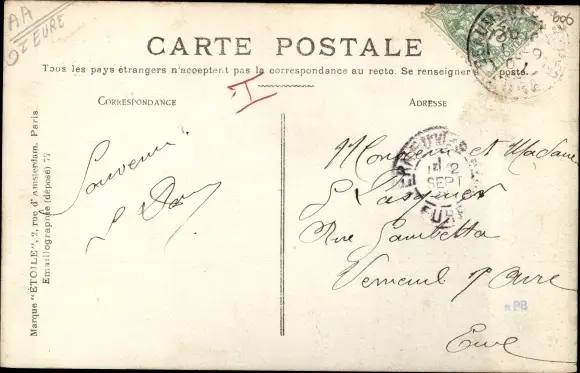 AA
Dt EURE
606
CARTE POSTALE
Tous les pays étrangers n'acceptent pas la correspondance au recto. Se renseigner à la poste.
I
CORRESPONDANCE
ADRESSE
Souvenir
Monsieur et Madame
Rue Gambetta
Verneuil s/ Avre
Eure
SEPT
EURE
*PB
Marque "ÉTOILE", 2, rue d'Amsterdam. Paris
Emaillographie (déposé) 77